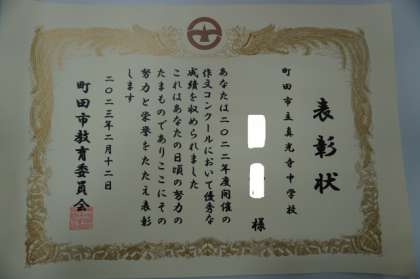 表彰状
町田市立真光寺中学校
様
あなたは二〇二二年度開催の
作文コンクールにおいて優秀な
成績を収められました
これはあなたの日頃の努力の
たまものでありここにその
努力と栄誉をたたえ表彰
します
二〇二三年二月十二日
町田市教育委員会